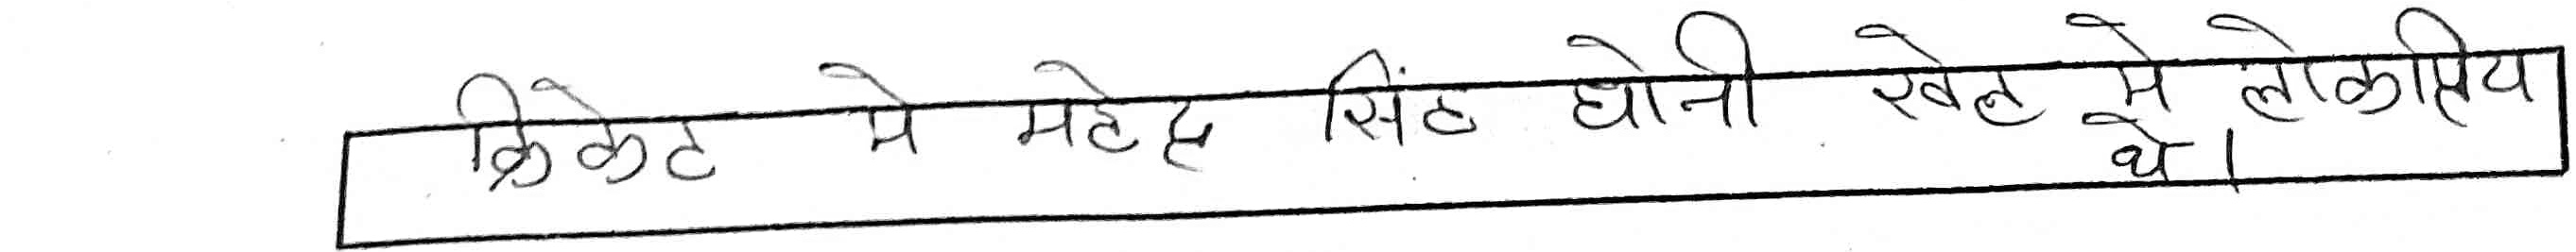 क्रिकेट मे महेन्द्र सिंह धोनी खेल मे लोकप्रिय
थे।